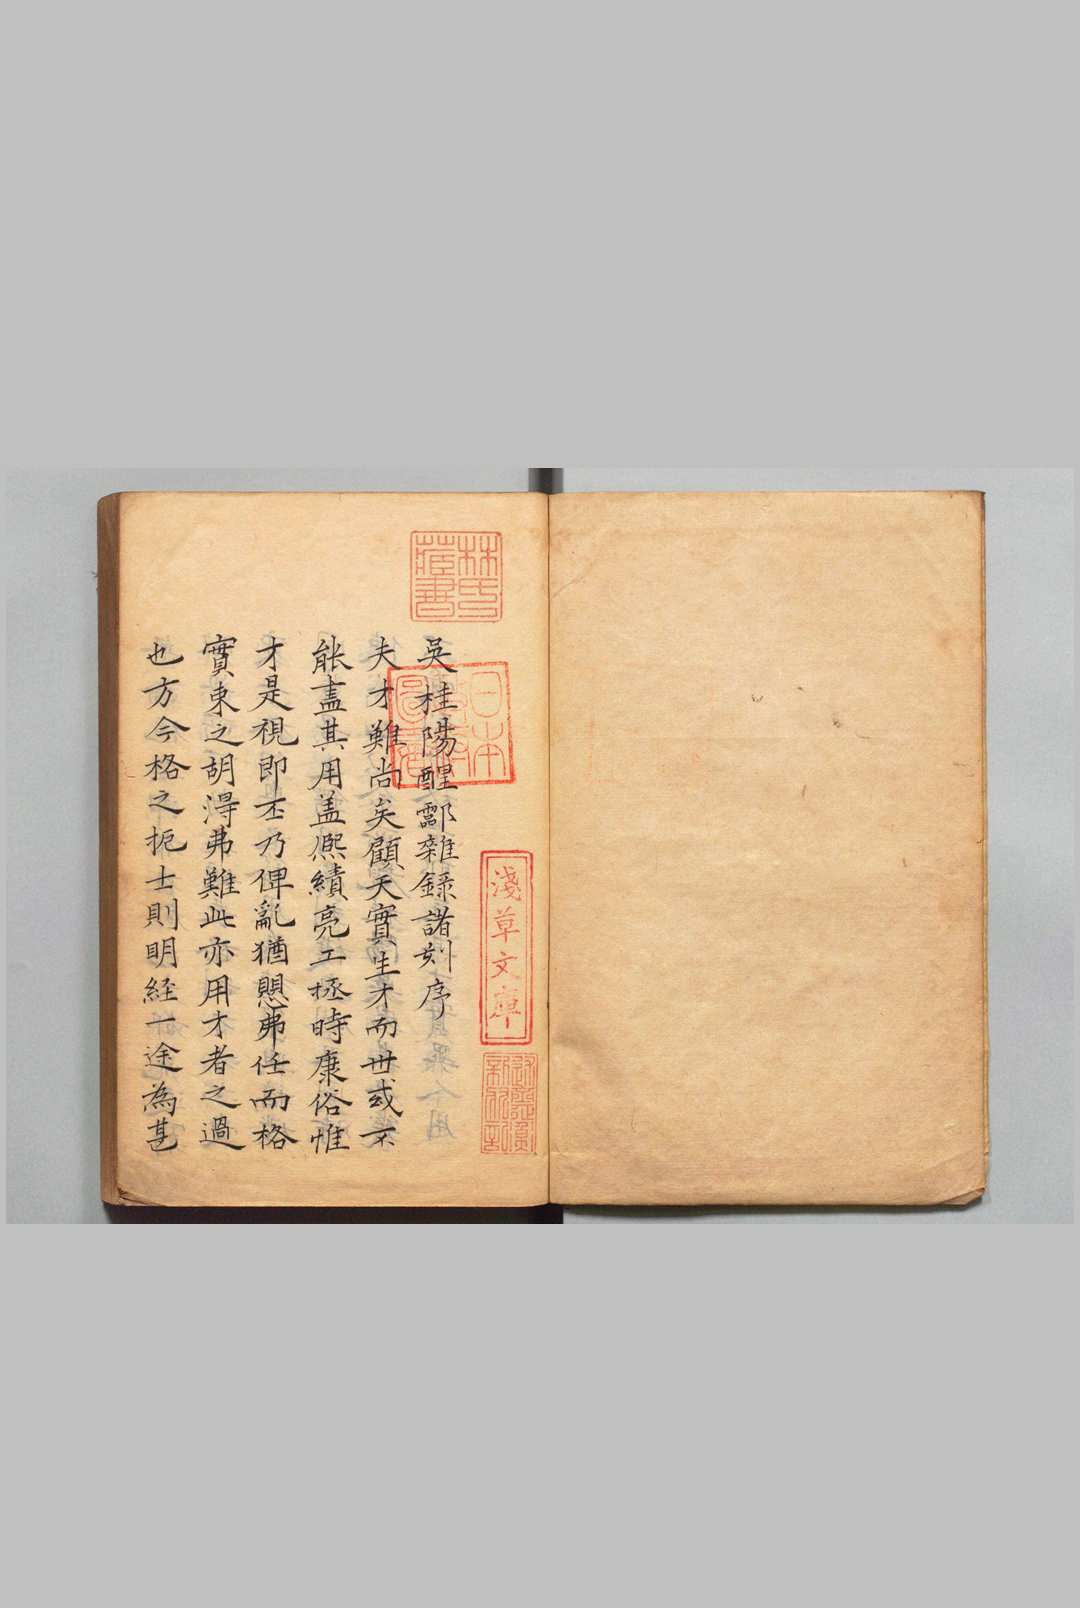 吳桂陽醒酃雜録諸刻序
夫才難尚矣顧天實生才而世或不
能盡其用盖熈績亮工拯時康俗惟
才是視即丕乃俾亂猶愳弗任而格
實束之胡淂弗難此亦用才者之過
也方今格之扼士則明経一途為甚
林氏藏書
日本
淺草文庫